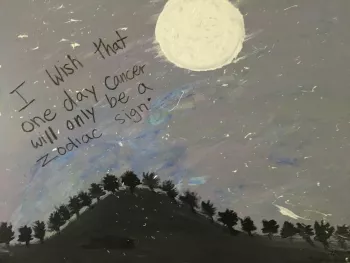 I wish that
one day Cancer
will only be a
zodiac sign.